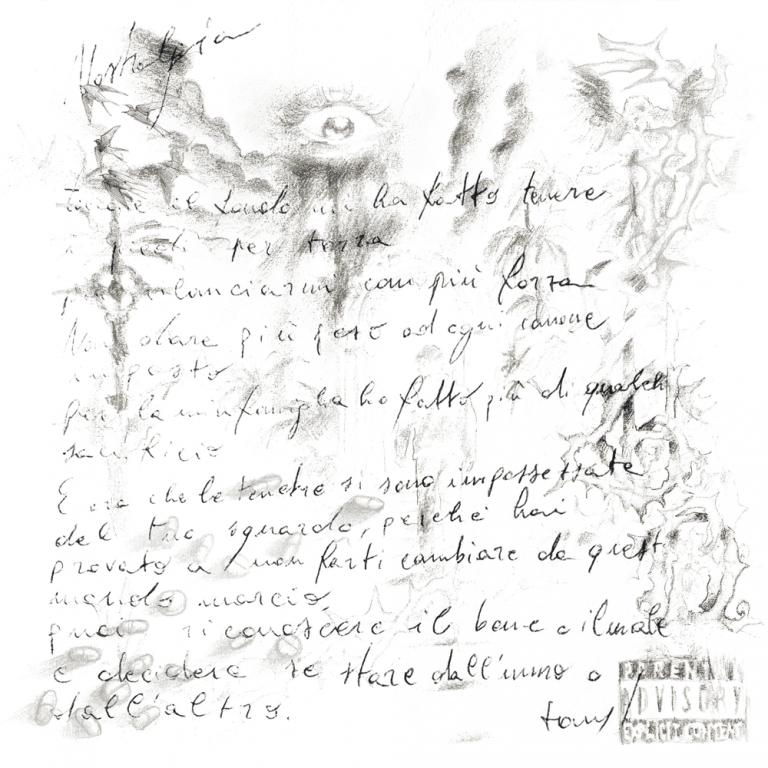 Nostalgia
Toccare il fondo mi ha fatto tenere
i piedi per terra
per rilanciarmi con più forza
Non dare più peso ad ogni canone
imposto
per la mia famiglia ho fatto più di qualche
sacrificio
E ora che le tenebre si sono impossessate
del tuo sguardo, perché hai
provato a non farti cambiare da questo
mondo marcio,
puoi riconoscere il bene o il male
e decidere se stare dall'uno o
dall'altro.
PARENTAL
ADVISORY
EXPLICIT CONTENT